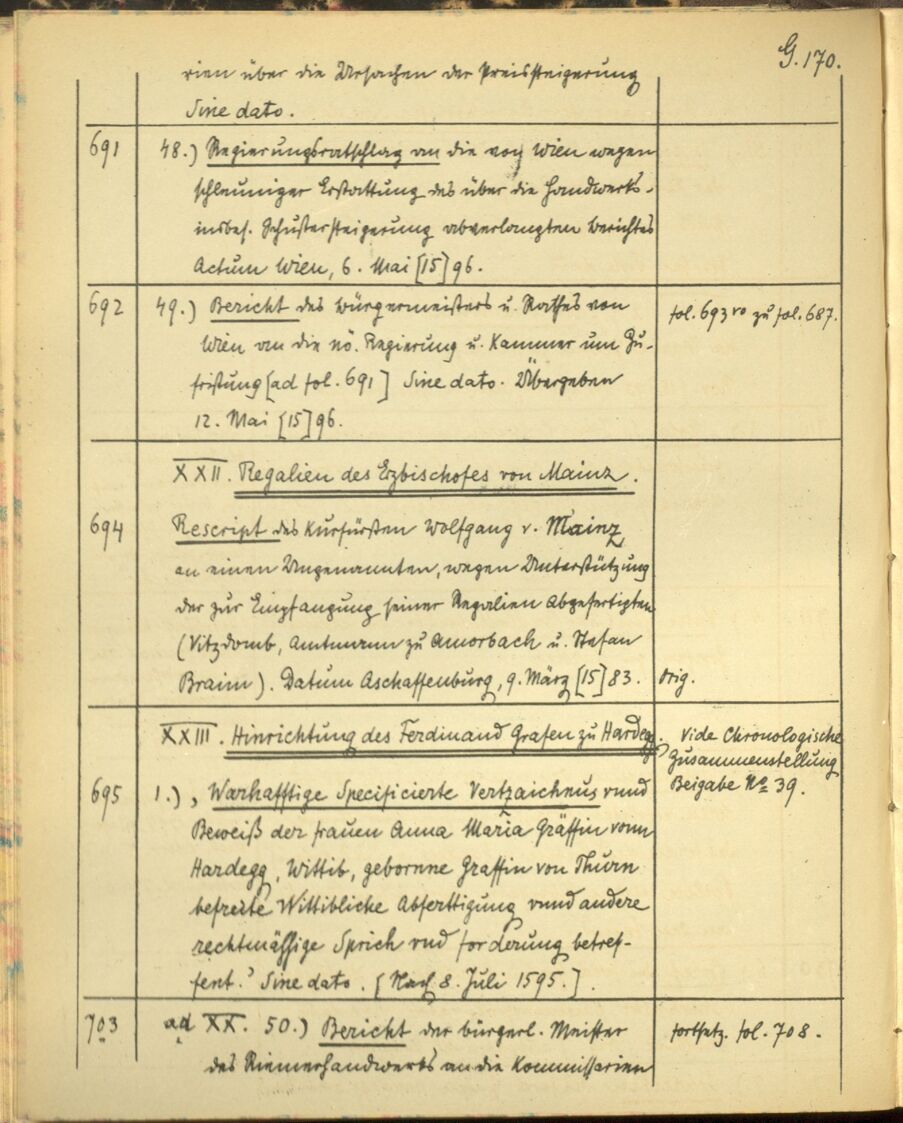 G. 170.
rien über die Ursachen der Preissteigerung
Sine dato.
691 48.) Regierungsratschlag an die von Wien wegen
schleuniger Erstattung des über die Handwerks-
insbes. Schustersteigerung abverlangten Berichtes
Actum Wien, 6. Mai [15]96.
692 49.) Bericht des Bürgermeisters u. Rathes von fol. 693 vo zu fol. 687.
Wien an die nö. Regierung u. Kammer um Zu-
fristung [ad fol. 691] Sine dato. Übergeben
12. Mai [15]96.
XXII. Regalien des Erzbischofes von Mainz.
694 Rescript des Kurfürsten Wolfgang v. Mainz
an einen Ungenannten, wegen Unterstützung
der zur Empfangung seiner Regalien Abgefertigten
(Vitzdomb, Amtmann zu Amorbach u. Stefan
Braim). Datum Aschaffenburg, 9. März [15]83. Orig.
XXIII. Hinrichtung des Ferdinand Grafen zu Hardegg. Vide Chronologische
Zusammenstellung
Beigabe No 39.
695 1.) „Warhafftige Specificierte Vertzaichnus vnnd
Beweiß der frauen Anna Maria Gräffin vonn
Hardegg, Wittib, gebornne Graffin von Thurn
befreite Wittibliche Abferttigung vnnd andere
rechtmässige Sprich vnd forderung betref-
fent.“ Sine dato. [Nach 8. Juli 1595.].
703 ad XX. 50.) Bericht der bürgerl. Meister fortsetz. fol. 708.
des Riemerhandwerks an die Kommissarien